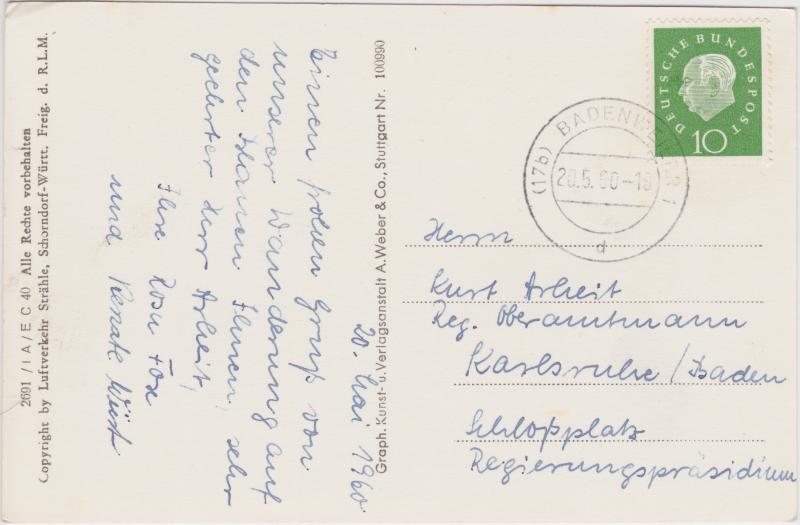 2691 / I A / E C 40 Alle Rechte vorbehalten
Copyright by Luftverkehr Strähle, Schorndorf-Württ. Freig. d. R.L.M.
20. Mai 1960
Einen frohen Gruß von
unserer Wanderung auf
den Blauen Ihnen, sehr
geehrter Herr Arheit,
Ihre Rosa Fox
und Renate Wüst
Graph. Kunst- u. Verlagsanstalt A. Weber & Co., Stuttgart Nr. 100990
DEUTSCHE BUNDESPOST
10
(17b) BADENWEILER 1
20.5.60-18
d
Herrn
Kurt Arheit
Reg. Oberamtmann
Karlsruhe / Baden
Schloßplatz
Regierungspräsidium